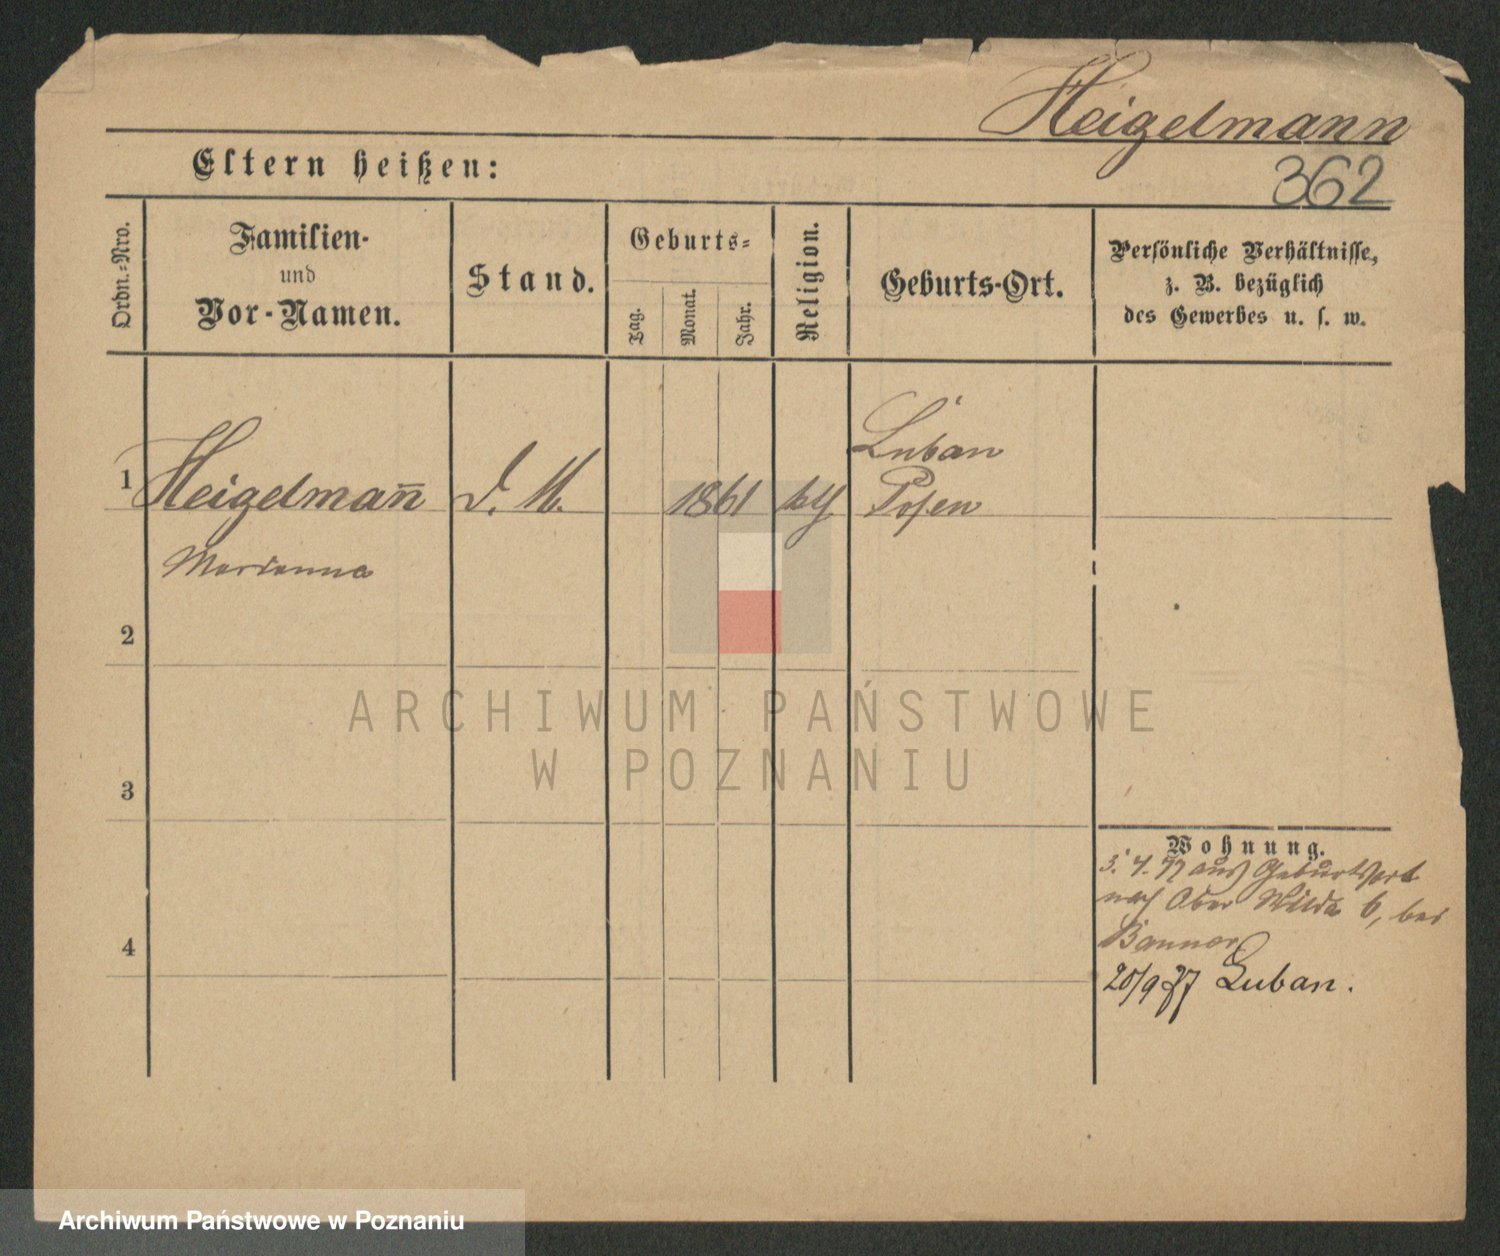 Heigelmann
362
Eltern heißen:
Ordn.-Nro.
Familien-
und
Vor-Namen.
Stand.
Geburts-
Tag.
Monat.
Jahr.
Religion.
Geburts-Ort.
Persönliche Verhältnisse,
z. B. bezüglich
des Gewerbes u. s. w.
1 Heigelman̄ d. M. 1861 kth Luban
Posen
Marianna
2
3
4
Wohnung.
3. 4. 77 aus Geburtsort
nach Ober Wilda 6, bei
20/9 77 Luban.
ARCHIWUM PAŃSTWOWE
W POZNANIU
Archiwum Państwowe w Poznaniu